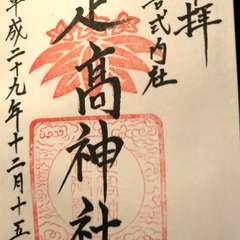 拝
式内社
足高神社
平成二十九年十二月十五